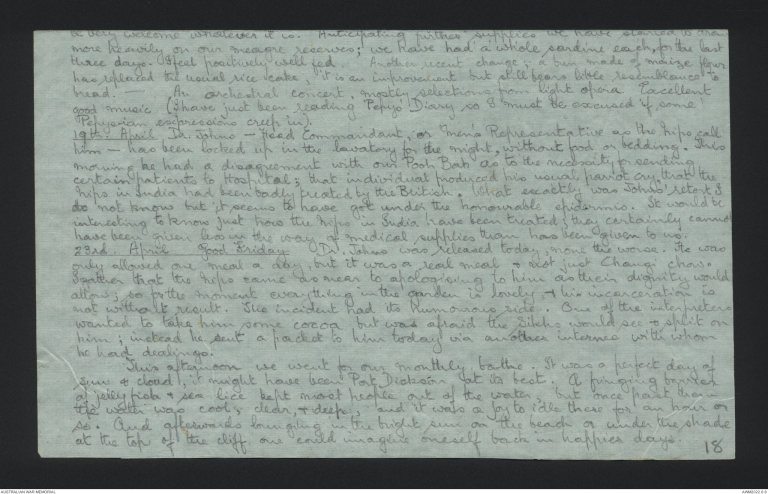 be very welcome whatever it is. Anticipating further supplies we have started to draw
more heavily on our meagre reserves; we have had a whole sardine each, for the last
three days. Feel positively well fed. Another recent change; a bun made of maize flour
has replaced the usual rice cake. It is an improvement but still bears little resemblance to
bread. — An orchestral concert, mostly selections from light opera. Excellent
good music (I have just been reading Pepys' Diary so I must be excused if some
Pepysian expressions creep in).
19th. April. Dr. Johns — Head Commandant, or Men's Representative as the Nips call
him — has been locked up in the lavatory for the night, without food or bedding. This
morning he had a disagreement with our Pooh Bah as to the necessity for sending
certain patients to Hospital; that individual produced his usual parrot cry that the
Nips in India had been badly treated by the British. What exactly was Johns' retort I
do not know but it seems to have got under the honourable epidermis. It would be
interesting to know just how the Nips in India have been treated; they certainly cannot
have been given less in the way of medical supplies than has been given to us.
23rd. April Good Friday Dr. Johns was released today, none the worse. He was
only allowed one meal a day, but it was a real meal & not just Changi chow.
Gather that the Nips came as near to apologising to him as their dignity would
allow; so for the moment everything in the garden is lovely, & his incarceration is
not without result. The incident had its humorous side. One of the interpreters
wanted to take him some cocoa but was afraid the Sikhs would see & split on
him; instead he sent a packet to him today via another internee with whom
he had dealings.
This afternoon we went for our monthly bathe. It was a perfect day of
sun & cloud; it might have been Port Dickson at its best. A fringing barrier
of jellyfish & sea lice kept most people out of the water, but once past them
the water was cool, clear, & deep, and it was a joy to idle there for an hour or
so. And afterwards lounging in the bright sun on the beach or under the shade
at the top of the cliff one could imagine oneself back in happier days.
18
AUSTRALIAN WAR MEMORIAL